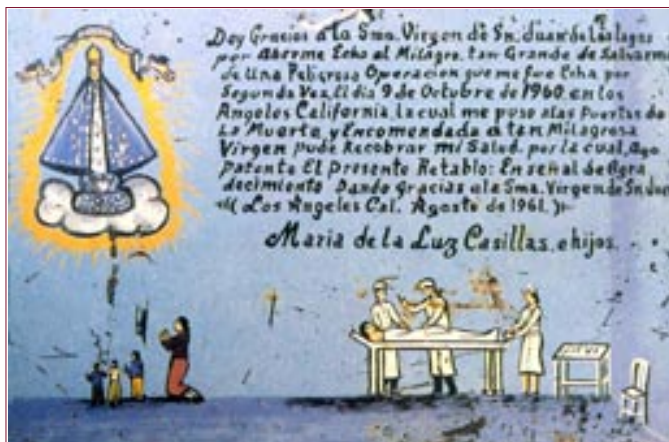 Doy Gracias a la Sma. Virgen de Sn. Juan de Los Lagos
por aberme Echo el Milagro, tan Grande de Salvarme
de Una Peligrosa Operacion que me fue Echa por
Segunda Vez, El dia 9 de Octubre de 1960 en los
Angeles California, la cual me puso a las Puertas de
La Muerte, y Encomendada a tan Milagrosa
Virgen pude Recobrar mi Salud, por la cual, ago
Patente El presente Retablo: En señal de Agra
decimiento Dando gracias a la Sma. Virgen de Sn Jua
(Los Angeles Cal. Agosto de 1961.)
Maria de la Luz Casillas, e hijos.